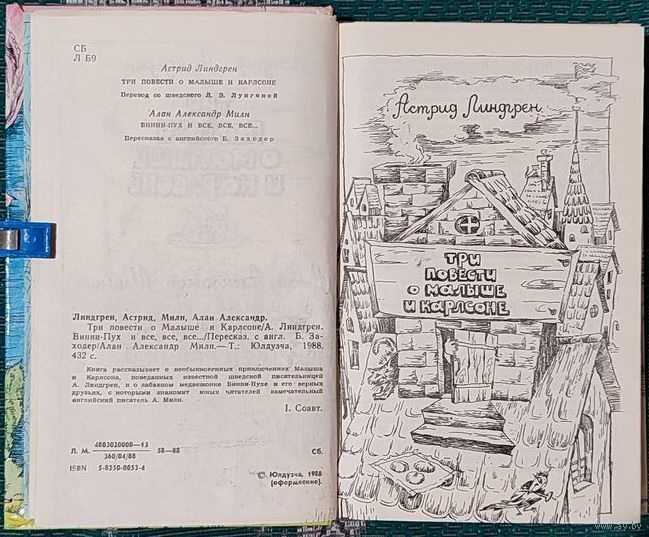 СБ
Л 69
Астрид Линдгрен
ТРИ ПОВЕСТИ О МАЛЫШЕ И КАРЛСОНЕ
Перевод со шведского Л. З. Лунгиной
Алан Александр Милн
ВИННИ-ПУХ И ВСЕ, ВСЕ, ВСЕ...
Пересказал с английского Б. Заходер
Линдгрен, Астрид, Милн, Алан Александр.
Три повести о Малыше и Карлсоне/А. Линдгрен.
Винни-Пух и все, все, все.../Пересказ. с англ. Б. За-
ходер/Алан Александр Милн.—Т.: Юлдузча, 1988.
432 с.
Книга рассказывает о необыкновенных приключениях Малыша
и Карлсона, поведанных известной шведской писательницей
А. Линдгрен, и о забавном медвежонке Винни-Пухе и его верных
друзьях, с которыми знакомит юных читателей замечательный
английский писатель А. Милн.
I. Соавт.
Л. М. 4803020000—13
360/04/88 58—88 Сб.
ISBN 5-8250-0053-4
© Юлдузча, 1988
(оформление).
Астрид Линдгрен
ТРИ
ПОВЕСТИ
О МАЛЫШЕ
И КАРЛСОНЕ
www.ay.by